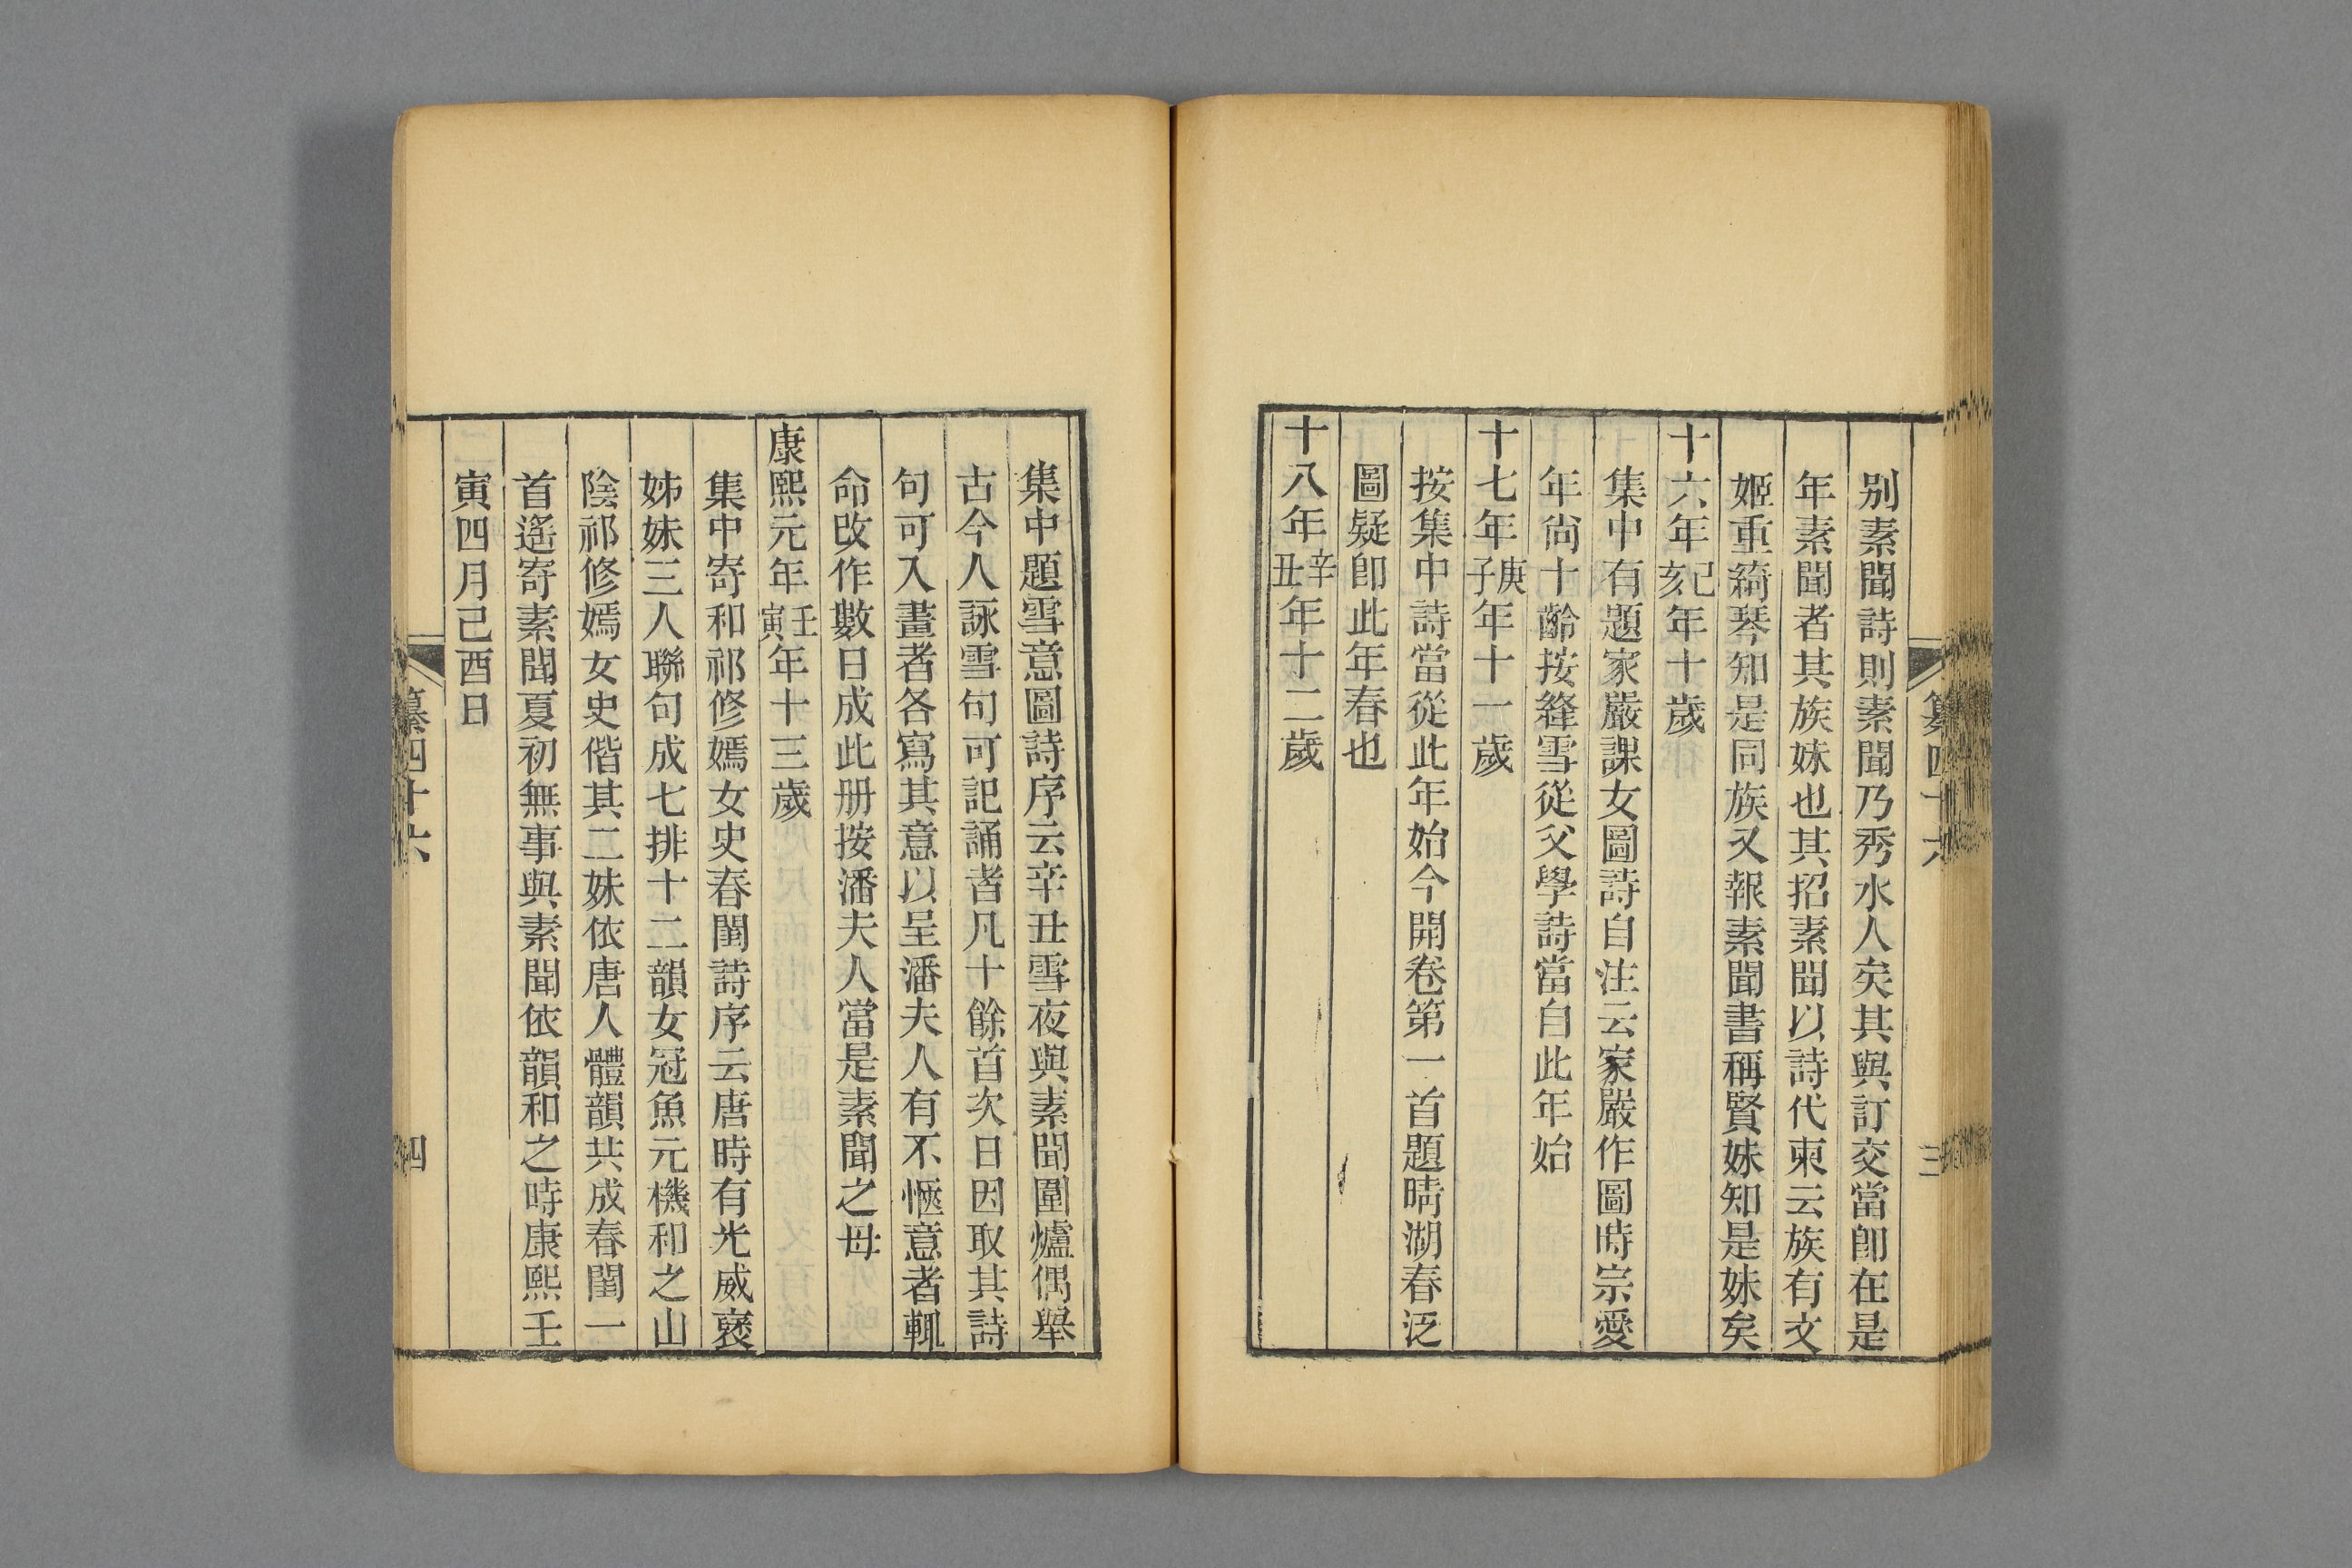 别素聞詩則素聞乃秀水人矣其與訂交當卽在是
年素聞者其族妹也其招素聞以詩代柬云族有文
姬重綺琴知是同族又報素聞書稱賢妹知是妹矣
十六年己亥年十歲
集中有題家嚴課女圖詩自注云家嚴作圖時宗愛
年尙十齡按絳雪從父學詩當自此年始
十七年庚子年十一歲
按集中詩當從此年始今開卷第一首題晴湖春泛
圖疑卽此年春也
十八年辛丑年十二歲
纂四十六
三
集中題雪意圖詩序云辛丑雪夜與素聞圍爐偶舉
古今人詠雪句可記誦者凡十餘首次日因取其詩
句可入畫者各寫其意以呈潘夫人有不愜意者輒
命改作數日成此册按潘夫人當是素聞之母
康熙元年壬寅年十三歲
集中寄和祁修嫣女史春閨詩序云唐時有光威裒
姊妹三人聯句成七排十二韻女冠魚元機和之山
陰祁修嫣女史偕其二妹依唐人體韻共成春閨一
首遙寄素聞夏初無事與素聞依韻和之時康熙壬
寅四月己酉日
纂四十六
四